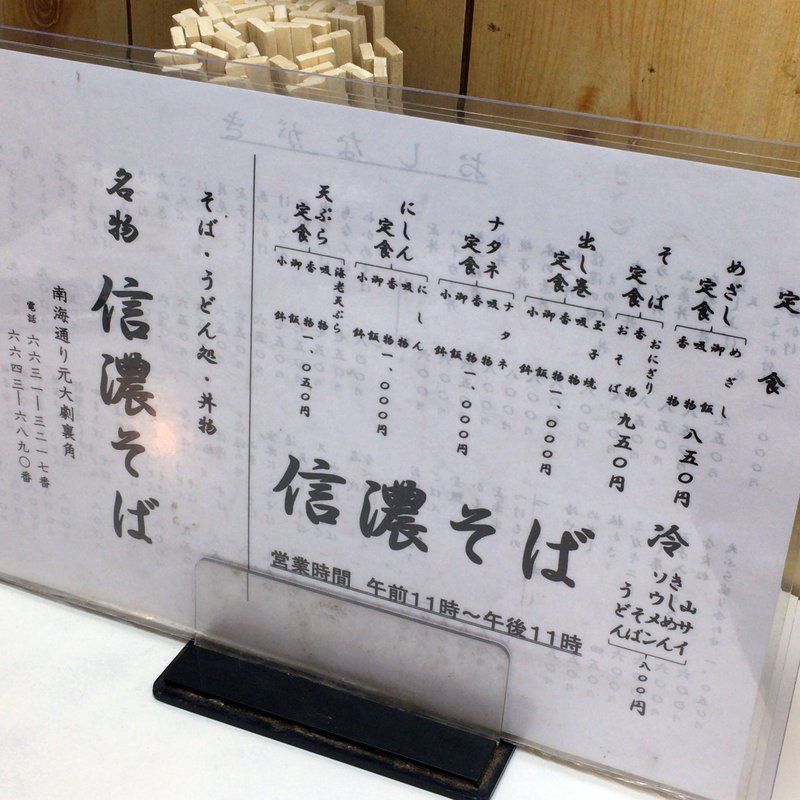 定食
めざし定食
めざし
御飯
吸物
香物
八五〇円
そば定食
おにぎり
香物
おそば
九五〇円
出し巻定食
玉子焼
吸物
香物
御飯
小鉢
一、〇〇〇円
ナタネ定食
ナタネ
吸物
香物
御飯
小鉢
一、〇〇〇円
にしん定食
にしん
吸物
香物
御飯
小鉢
一、〇〇〇円
天ぷら定食
海老天ぷら
吸物
香物
御飯
小鉢
一、〇五〇円
冷
山サイ
きしめん
ソウメン
そば
うどん
八〇〇円
信濃そば
営業時間 午前11時〜午後11時
そば・うどん処・丼物
名物 信濃そば
南海通り元大劇裏角
電話 六六三一ー三三一七番
六六四三ー六八九〇番
おしながき